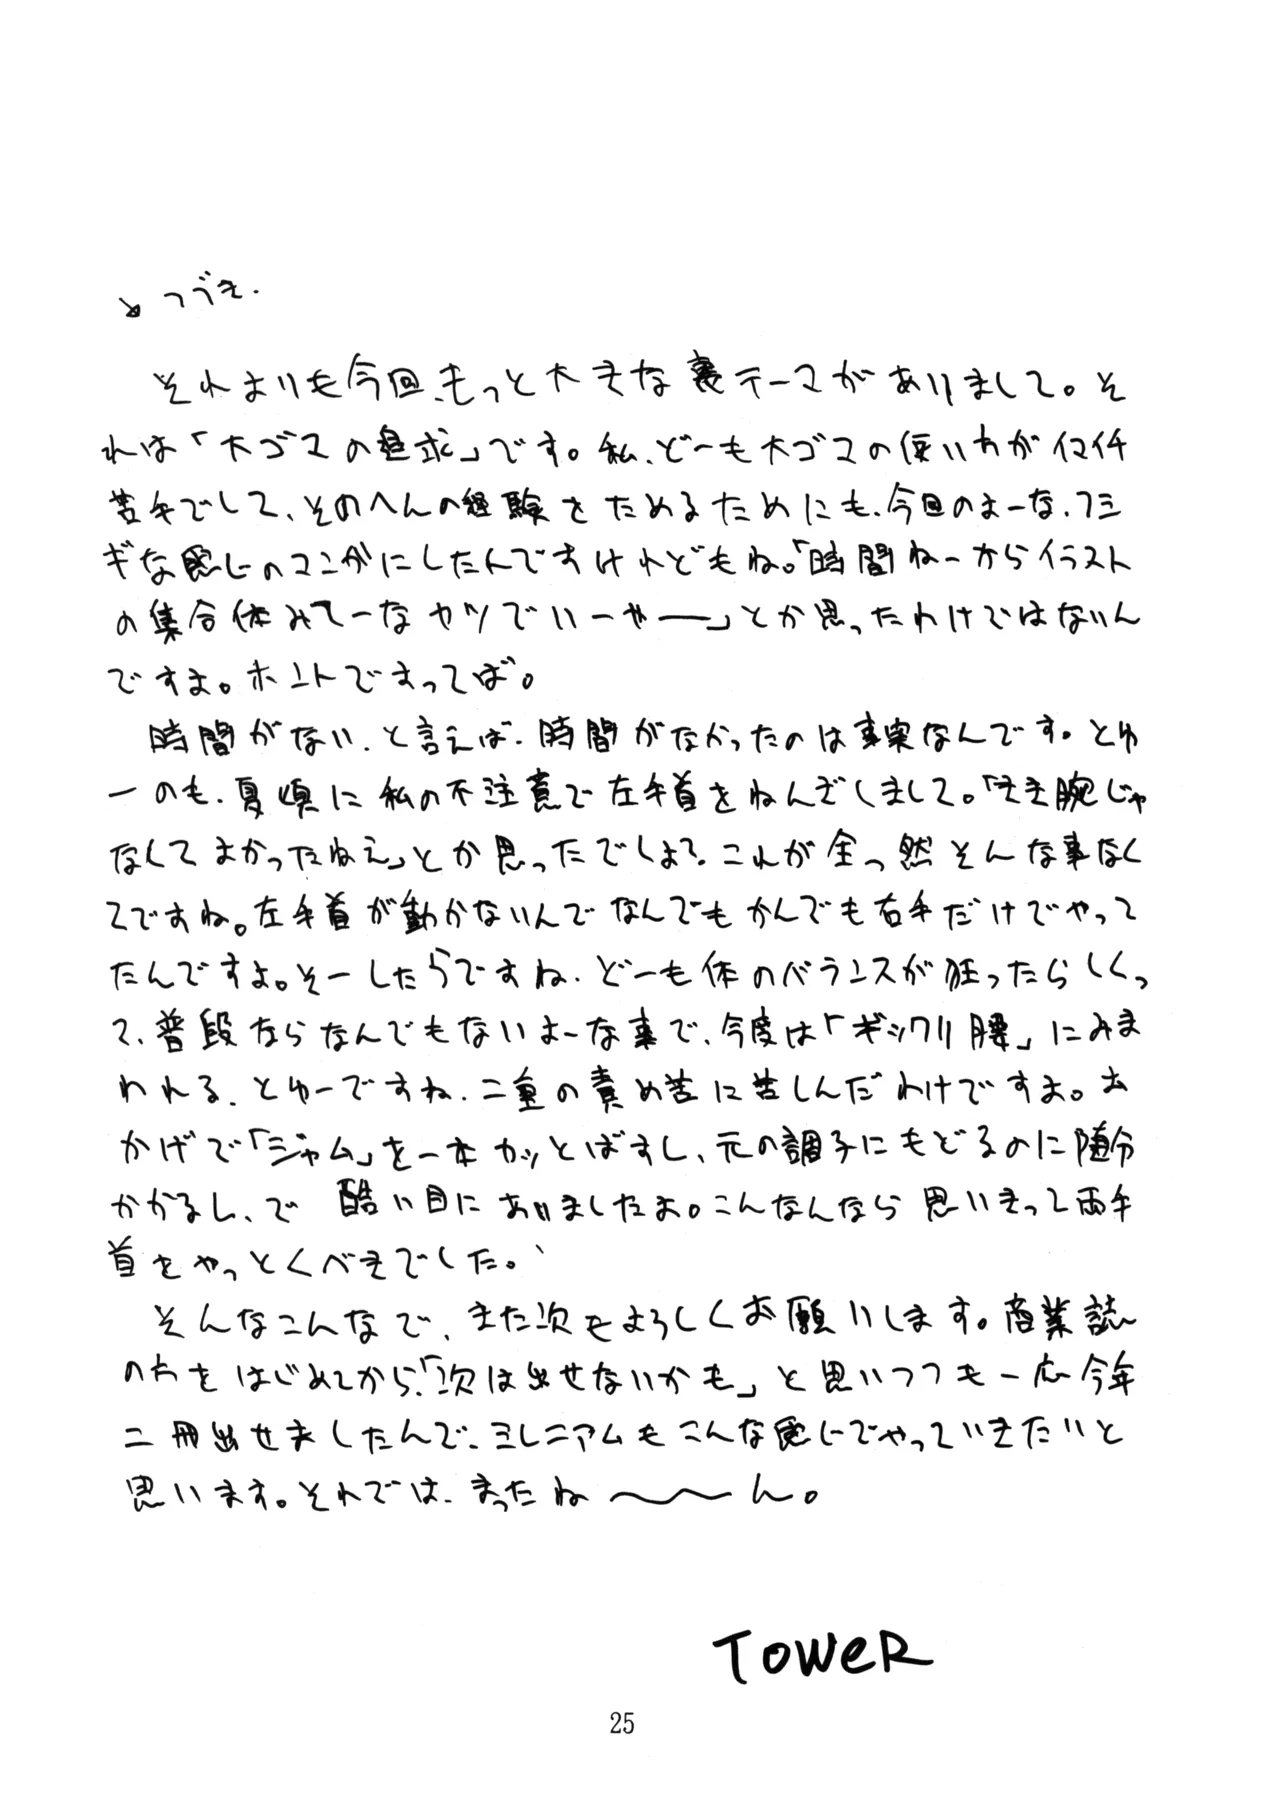 ↘つづき.
それよりも今回、もっと大きな裏テーマがありまして。そ
れは「大ゴマの追求」です。私、どーも大ゴマの使いわがイマイチ
苦手でして、そのへんの経験をためるためにも、今回のよーな、フシ
ギな感じのマンガにしたんですけれどもね。「時間ねーからイラスト
の集合体みてーなヤツでいーやー」とか思ったわけではないん
ですよ。ホントですってば。
時間がない、と言えば、時間がなかったのは事実なんです。とゆ
ーのも、夏頃に私の不注意で左手首をねんざしまして。「きき腕じゃ
なくてよかったねえ」とか思ったでしょ?これが全っ然そんな事なく
てですね。左手首が動かないんでなんでもかんでも右手だけでやって
たんですよ。そーしたらですね、どーも体のバランスが狂ったらしくっ
て、普段ならなんでもないよーな事で、今度は「ギックリ腰」にみま
われる、とゆーですね、二重の責め苦に苦しんだわけですよ。お
かげで「ジャム」を一本カッとばすし、元の調子にもどるのに随分
かかるし、で 酷い目にあいましたよ。こんなんなら思いきって両手
首をやっとくべきでした。
そんなこんなで、また次もよろしくお願いします。商業誌
の方をはじめてから、「次は出せないかも」と思いつつも一応今年
二冊出せましたんで、ミレニアムもこんな感じでやっていきたいと
思います。それでは、まったね〜〜ん。
TOWER
25